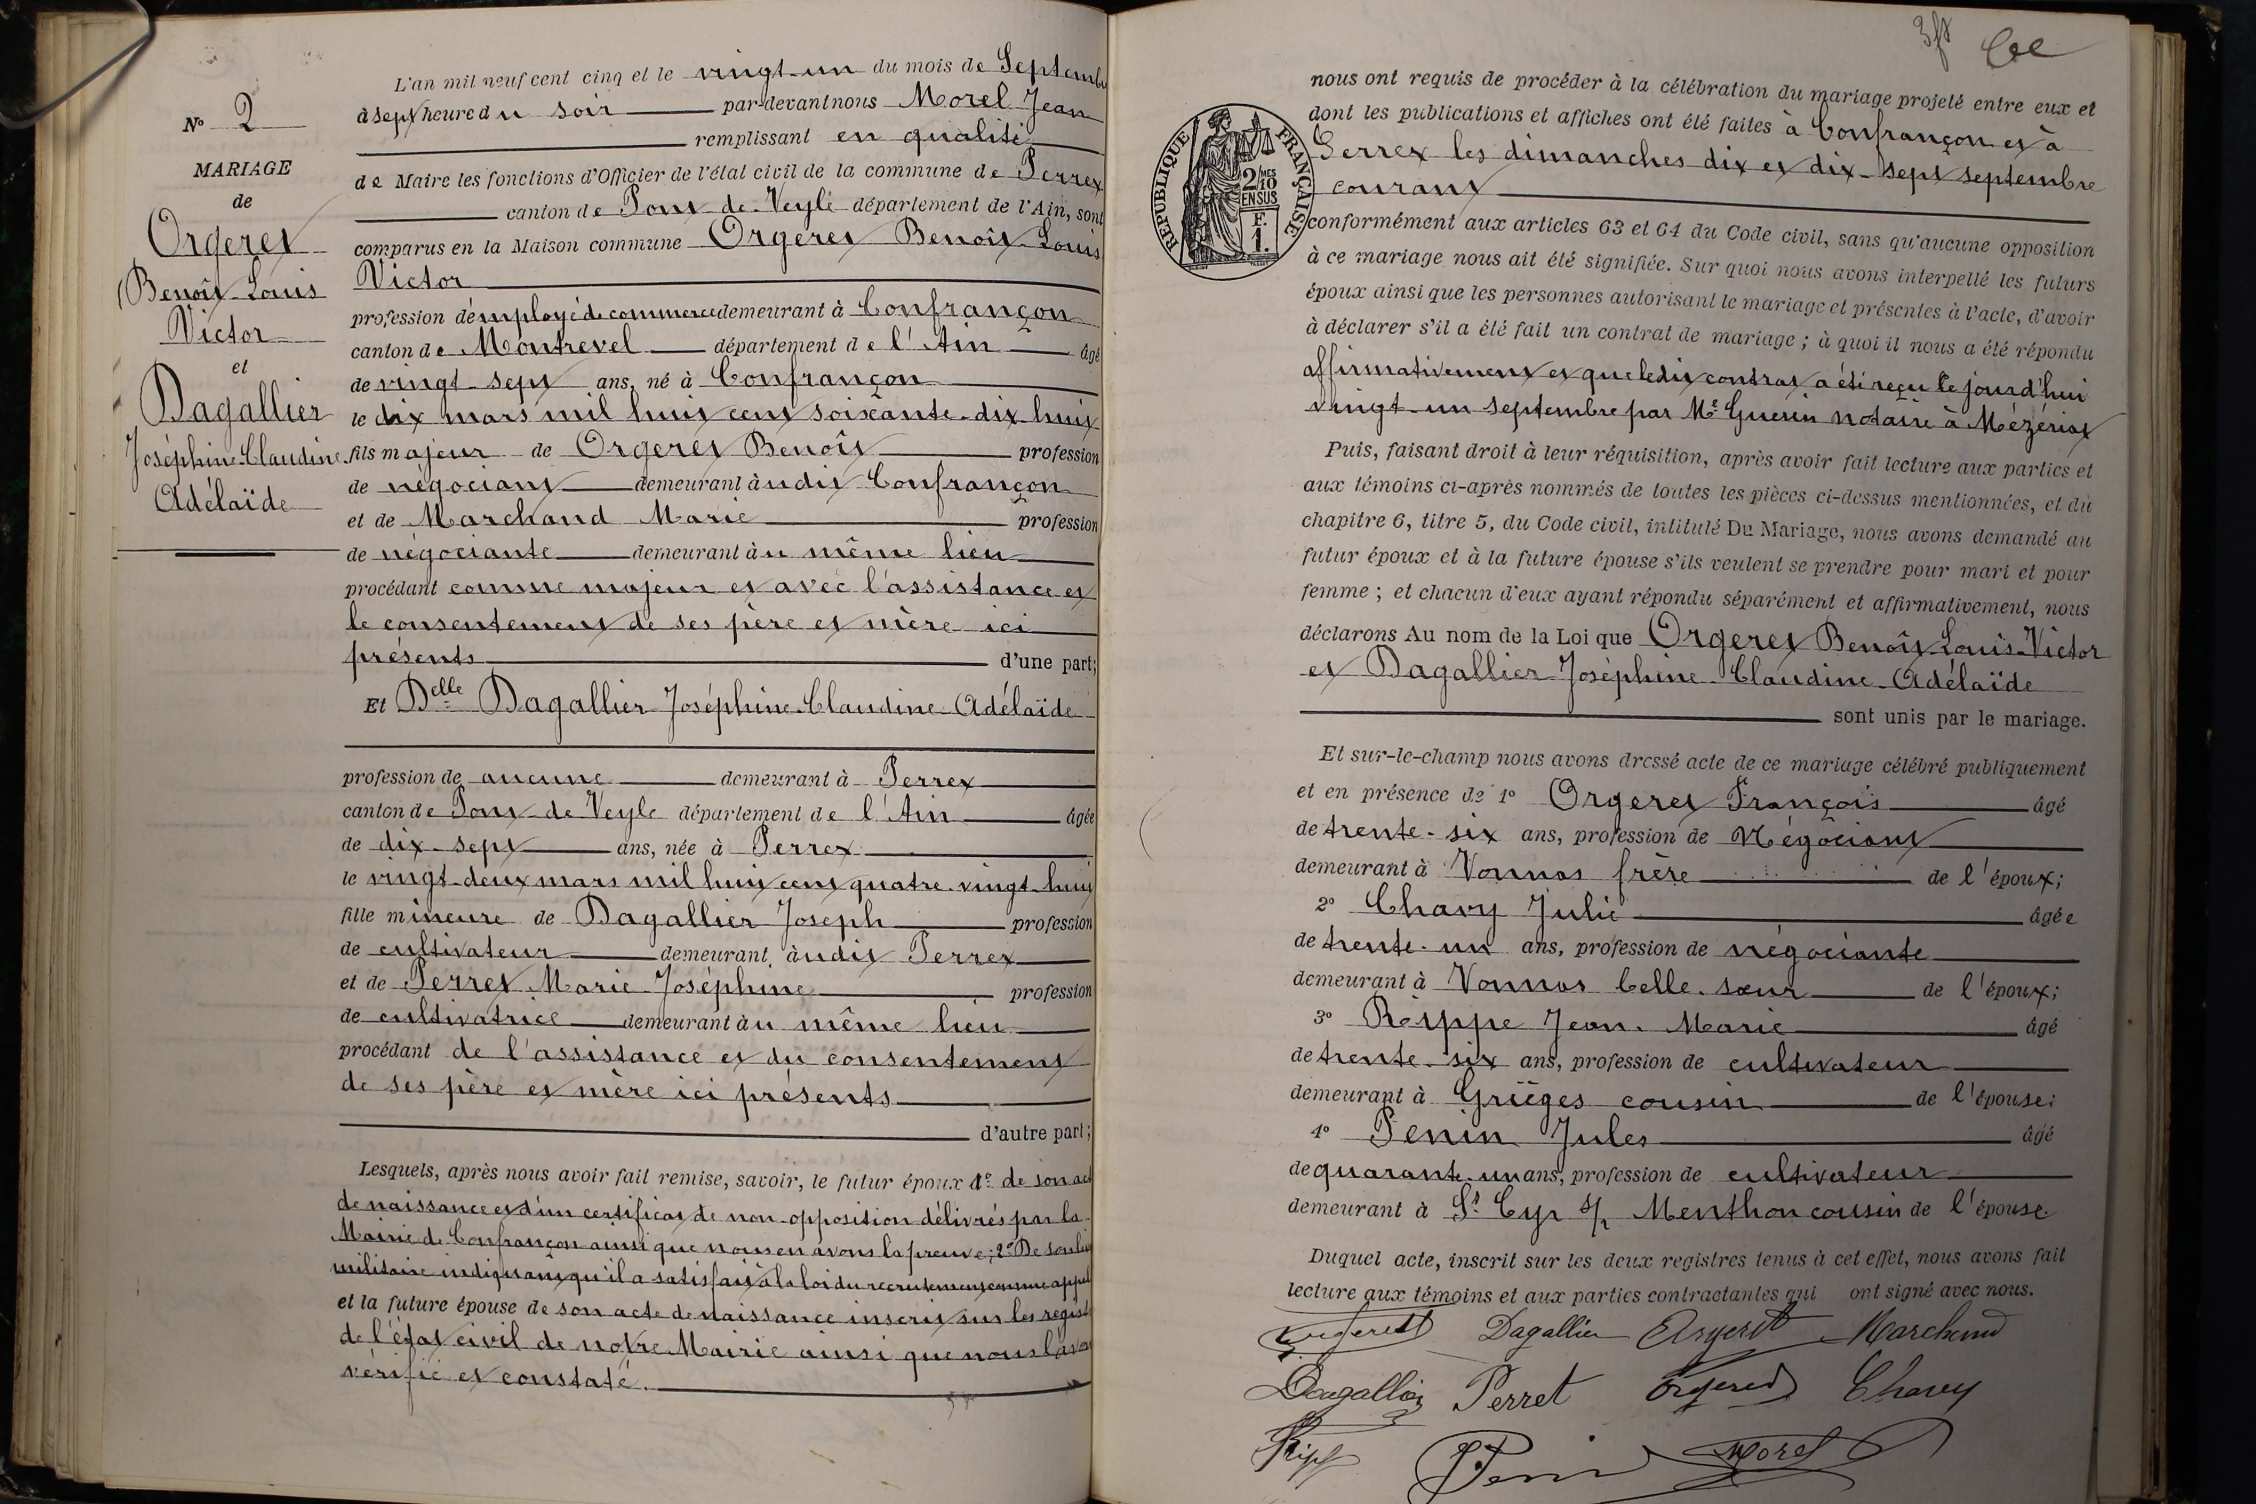 N° 2
MARIAGE
de
Orgeret
Benoît Louis
Victor
et
Dagallier
Joséphine Claudine
Adélaïde
L'an mil neuf cent cinq et le vingt-un du mois de Septembre
à sept heure du soir par-devant nous Morel Jean
remplissant en qualité
de Maire les fonctions d'Officier de l'état civil de la commune de Perrex
canton de Pont-de-Veyle département de l'Ain, sont
comparus en la Maison commune Orgeret Benoît Louis
Victor
profession d'employé de commerce demeurant à Confrançon
canton de Montrevel département de l'Ain âgé
de vingt-sept ans, né à Confrançon
le dix mars mil huit cent soixante-dix-huit
fils majeur de Orgeret Benoît profession
de négociant demeurant à udit Confrançon
et de Marchand Marie profession
de négociante demeurant àu même lieu
procédant comme majeur et avec l'assistance et
le consentement de ses père et mère ici
présents d'une part;
Et Delle Dagallier Joséphine Claudine Adélaïde
profession de aucune demeurant à Perrex
canton de Pont-de-Veyle département de l'Ain âgée
de dix-sept ans, née à Perrex
le vingt-deux mars mil huit cent quatre-vingt-huit
fille mineure de Dagallier Joseph profession
de cultivateur demeurant àudit Perrex
et de Perret Marie Joséphine profession
de cultivatrice demeurant àu même lieu
procédant de l'assistance et du consentement
de ses père et mère ici présents
d'autre part;
Lesquels, après nous avoir fait remise, savoir, le futur époux 1° de son act
de naissance et d'un certificat de non-opposition délivrés par la
Mairie de Confrançon ainsi que nous en avons la preuve; 2° De son liv
militaire indiquant qu'il a satisfait à la loi du recrutement comme appel
et la future épouse de son acte de naissance inscrit sur les regist
de l'état civil de notre Mairie ainsi que nous l'avon
vérifié et constaté.
3ft
RÉPUBLIQUE FRANÇAISE
2/10 MES
EN SUS
F.
1.
nous ont requis de procéder à la célébration du mariage projeté entre eux et
dont les publications et affiches ont été faites à Confrançon et à
Perrex les dimanches dix et dix-sept septembre
courant
conformément aux articles 63 et 64 du Code civil, sans qu'aucune opposition
à ce mariage nous ait été signifiée. Sur quoi nous avons interpellé les futurs
époux ainsi que les personnes autorisant le mariage et présentes à l'acte, d'avoir
à déclarer s'il a été fait un contrat de mariage; à quoi il nous a été répondu
affirmativement et que ledit contrat a été reçu le jourd'hui
vingt-un septembre par Me Guerin notaire à Mézériat
Puis, faisant droit à leur réquisition, après avoir fait lecture aux parties et
aux témoins ci-après nommés de toutes les pièces ci-dessus mentionnées, et du
chapitre 6, titre 5, du Code civil, intitulé Du Mariage, nous avons demandé au
futur époux et à la future épouse s'ils veulent se prendre pour mari et pour
femme; et chacun d'eux ayant répondu séparément et affirmativement, nous
déclarons Au nom de la Loi que Orgeret Benoît Louis Victor
et Dagallier Joséphine Claudine Adélaïde
sont unis par le mariage.
Et sur-le-champ nous avons dressé acte de ce mariage célébré publiquement
et en présence de 1° Orgeret François âgé
de trente-six ans, profession de Négociant
demeurant à Vonnas frère de l'époux;
2° Chavy Julie âgée
de trente-un ans, profession de négociante
demeurant à Vonnas belle-sœur de l'époux;
3° Rippe Jean-Marie âgé
de trente-six ans, profession de cultivateur
demeurant à Grièges cousin de l'épouse;
4° Penin Jules âgé
de quarante-un ans, profession de cultivateur
demeurant à St Cyr s/ Menthon cousin de l'épouse
Duquel acte, inscrit sur les deux registres tenus à cet effet, nous avons fait
lecture aux témoins et aux parties contractantes qui ont signé avec nous.
Orgeret Dagallier Orgeret Marchand
Dagallier Perret Orgeret Chavy
Ripp J Penin Morel